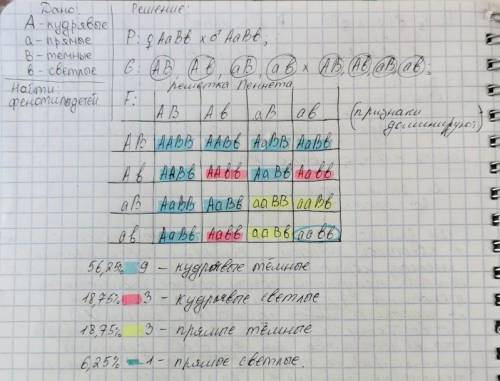 Дано:
А - кудрявые
а - прямые
В - тёмные
в - светлые
Найти:
фенотип детей
Решение:
Р: ♀ АаВв × ♂ АаВв,
G: АВ, Ав, аВ, ав × АВ, Ав, аВ, ав;
F: Решётка Пеннета
АВ Ав аВ ав
АВ ААВВ ААВв АаВВ АаВв
Ав ААВв ААвв АаВв Аавв
аВ АаВВ АаВв ааВВ ааВв
ав АаВв Аавв ааВв аавв
(признаки
доминируют)
56,25% 9 - кудрявые тёмные
18,75% 3 - кудрявые светлые
18,75% 3 - прямые тёмные
6,25% 1 - прямые светлые.